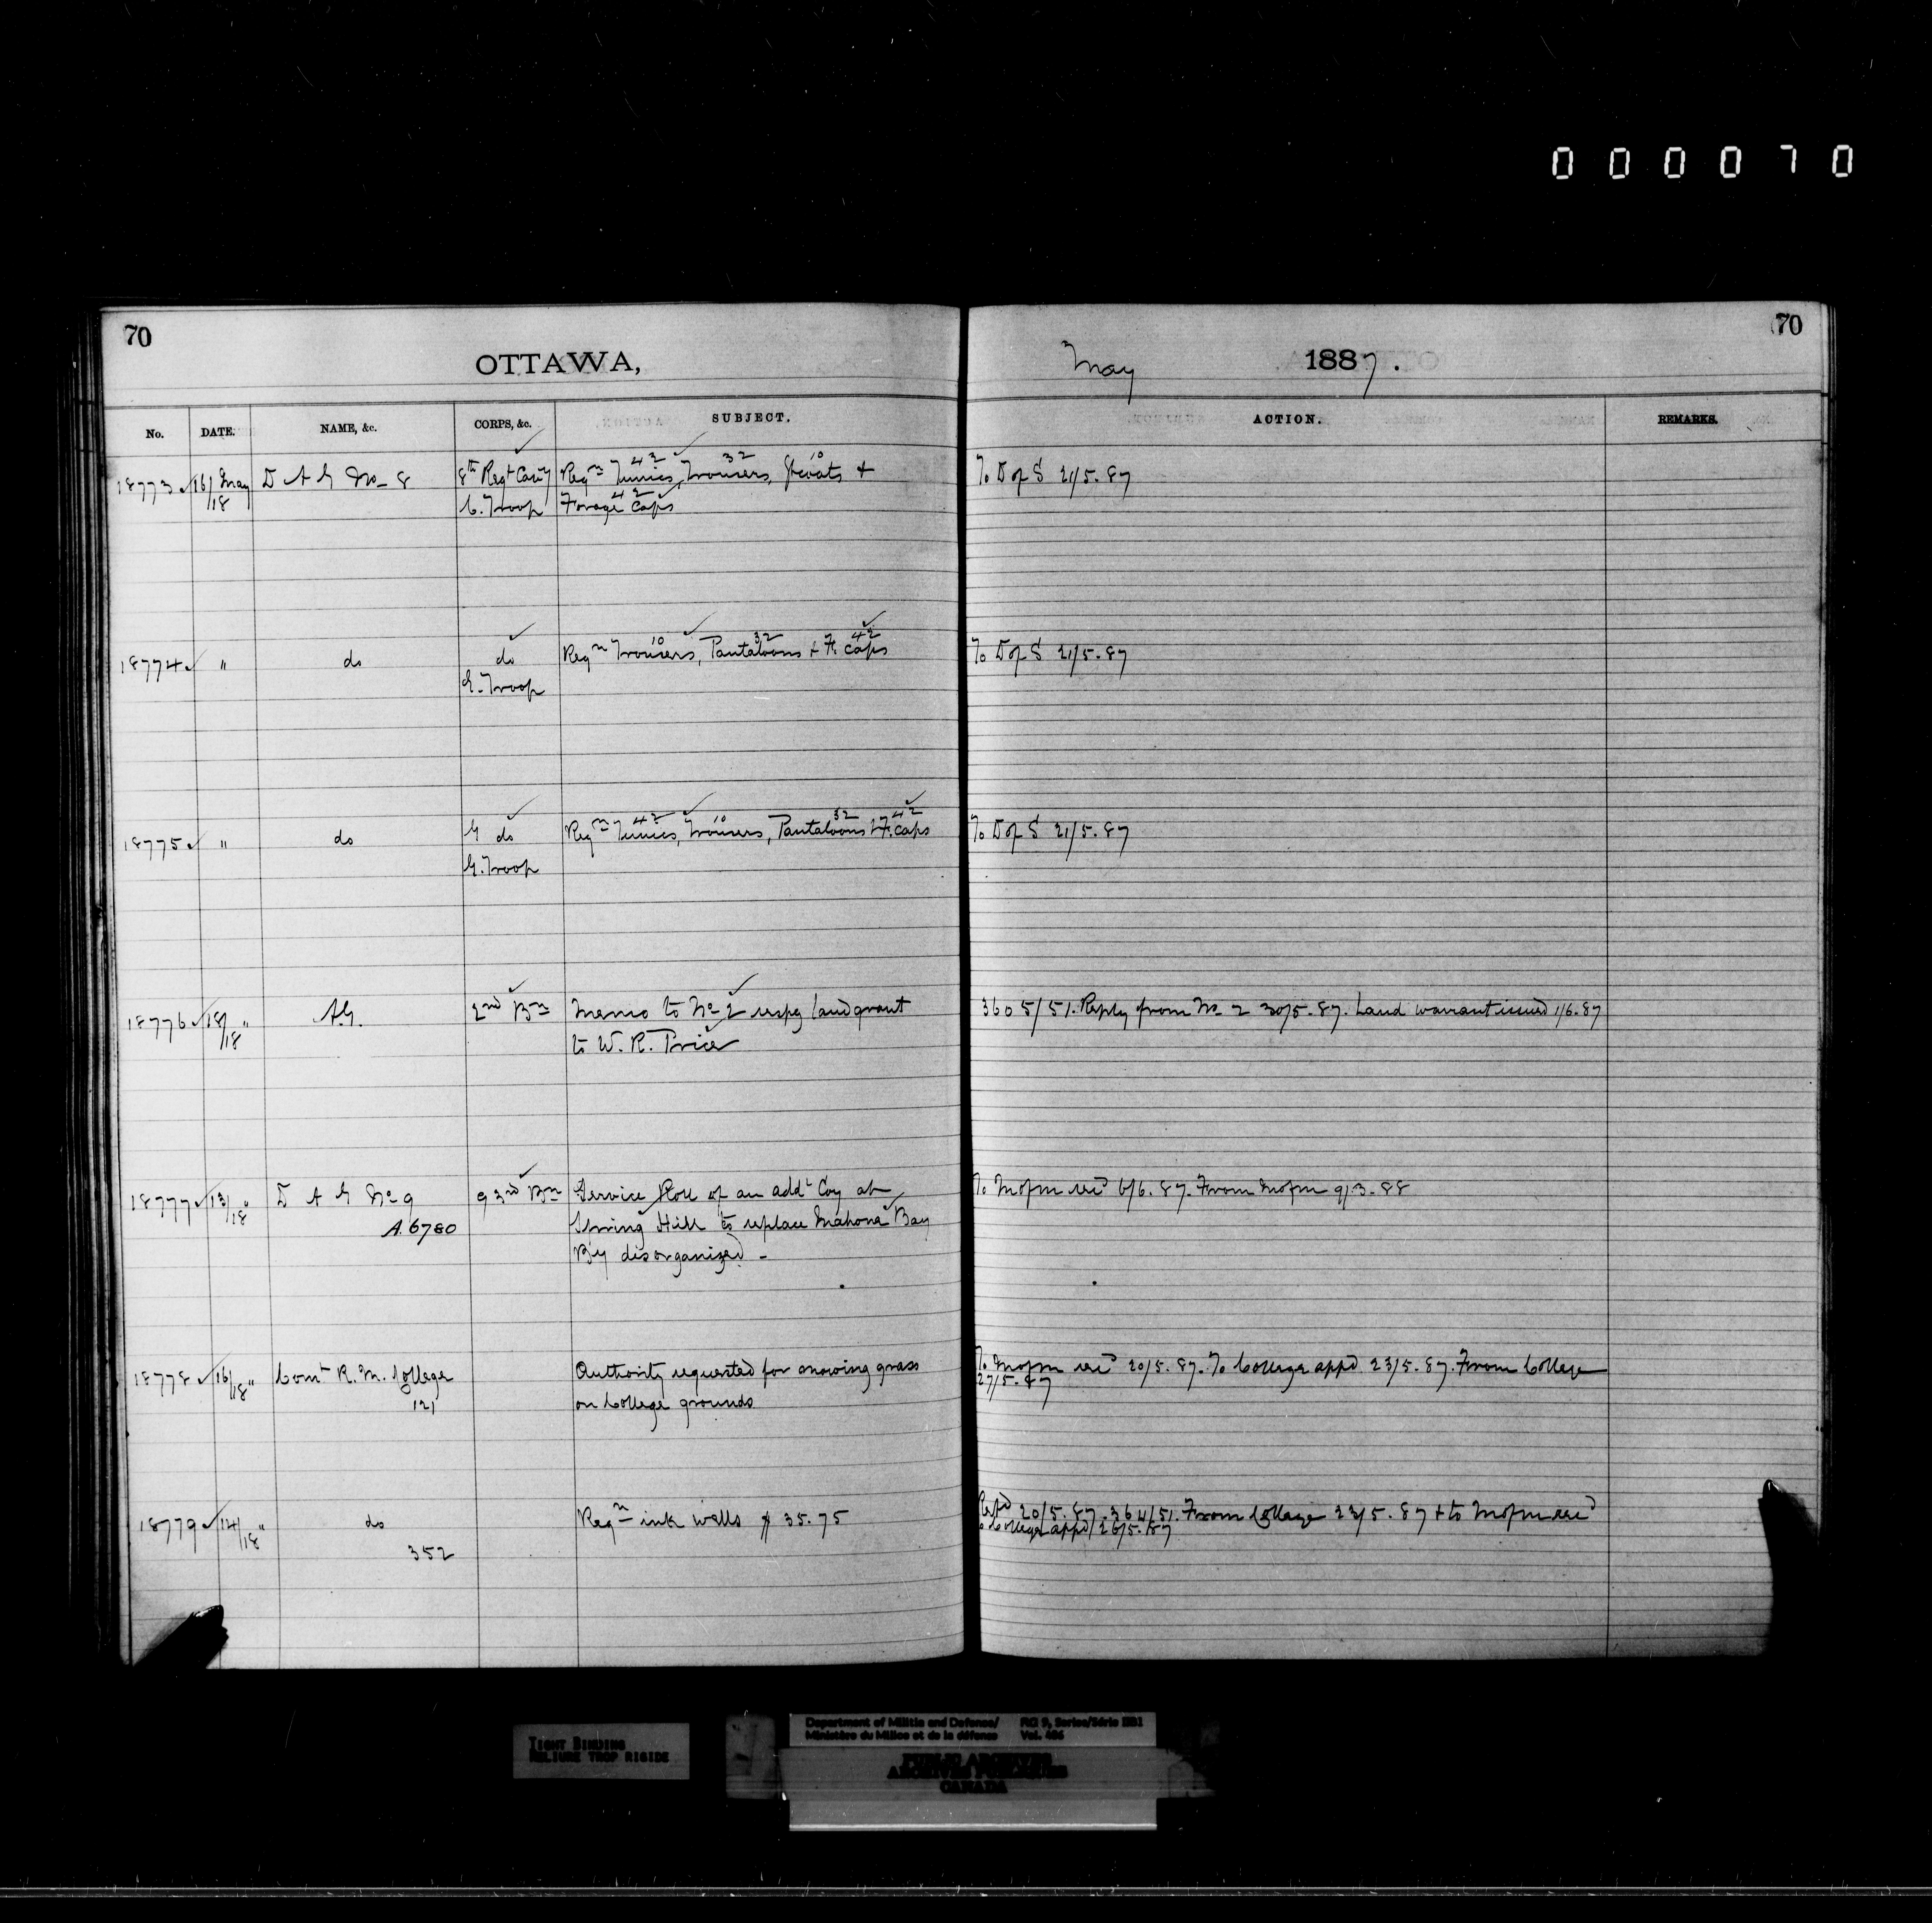 000070
70
OTTAWA,
May 1887.
70
No. DATE. NAME, &c. CORPS, &c. SUBJECT. ACTION. REMARKS.
18773 16/18 May D A G No 8 8th Regt Cavy Reqn Tunics 42, Trousers 32, Gtcoats 10 & To D of S 21/5.87
C. Troop Forage Caps 42
18774 " do do Reqn Trousers 10, Pantaloons 32 & F. Caps 42 To D of S 21/5.87
E. Troop
18775 " do G do Reqn Tunics 42, Trousers 10, Pantaloons 32 & F. Caps 42 To D of S 21/5.87
G. Troop
18776 18/18 " A.G. 2nd Bn Memo to No 2 respg land grant 3605/51. Reply from No 2 30/5.87. Land warrant issued 1/6.87
to W. R. Price
18777 13/18 " D A G No 9 93rd Bn Service Roll of an addl Coy at To Mofm recd 6/6.87. From Mofm 9/3.88
A. 6780 Spring Hill to replace Mahone Bay
By disorganized -
18778 16/18 " Comt R. M. College Authority requested for mowing grass To Mofm recd 20/5.87. To College appd 23/5.87. From College
121 on College grounds 27/5.87
18779 14/18 " do Reqn ink wells $ 35.75 Repd 20/5.87. 364/51. From College 23/5.87 & to Mofm recd
352 to College appd 26/5.87
TIGHT BINDING
RELIURE TROP RIGIDE
Department of Militia and Defence/ RG 9, Series/Série IIB1
Ministère du Milice et de la défense Vol. 486
PUBLIC ARCHIVES
ARCHIVES PUBLIQUES
CANADA